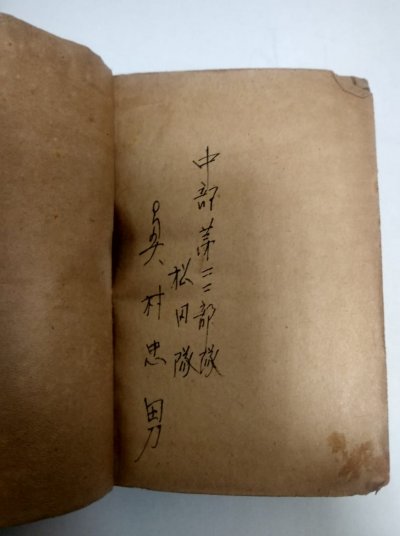 中部第二二部隊
松田隊
村忠男